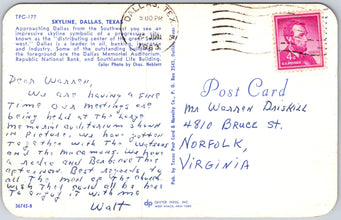 TPC-177
SKYLINE, DALLAS, TEXAS
Approaching Dallas from the Southwest you see an
impressive skyline symbolic of a progressive city
known as the "distributing center of the great South-
west." Dallas is a leader in oil, banking, insurance
and industry. Some of the outstanding buildings in
the foreground are the Dallas Memorial Auditorium,
Republic National Bank, and Southland Life Building.
Color Photo by Chas. Nebbitt
DALLAS, TEX
5:00 PM
4¢
Dear Warren,
We are having a fine
time. Our meetings are
being held at the large
memorial auditorium shown
in picture. We have gotten
together with the Watsons
and the We have
a this
afternoon. Best regards to
all the men of the church
wish they could all be here
to enjoy it with me
Walt
Pub. by Texas Post Card & Novelty Co., P.O. Box Dallas, Texas
Post Card
Mr Warren Driskill
4810 Bruce St.
Norfolk,
Virginia
36745-B
dp DEXTER PRESS, INC.
WEST NYACK, NEW YORK